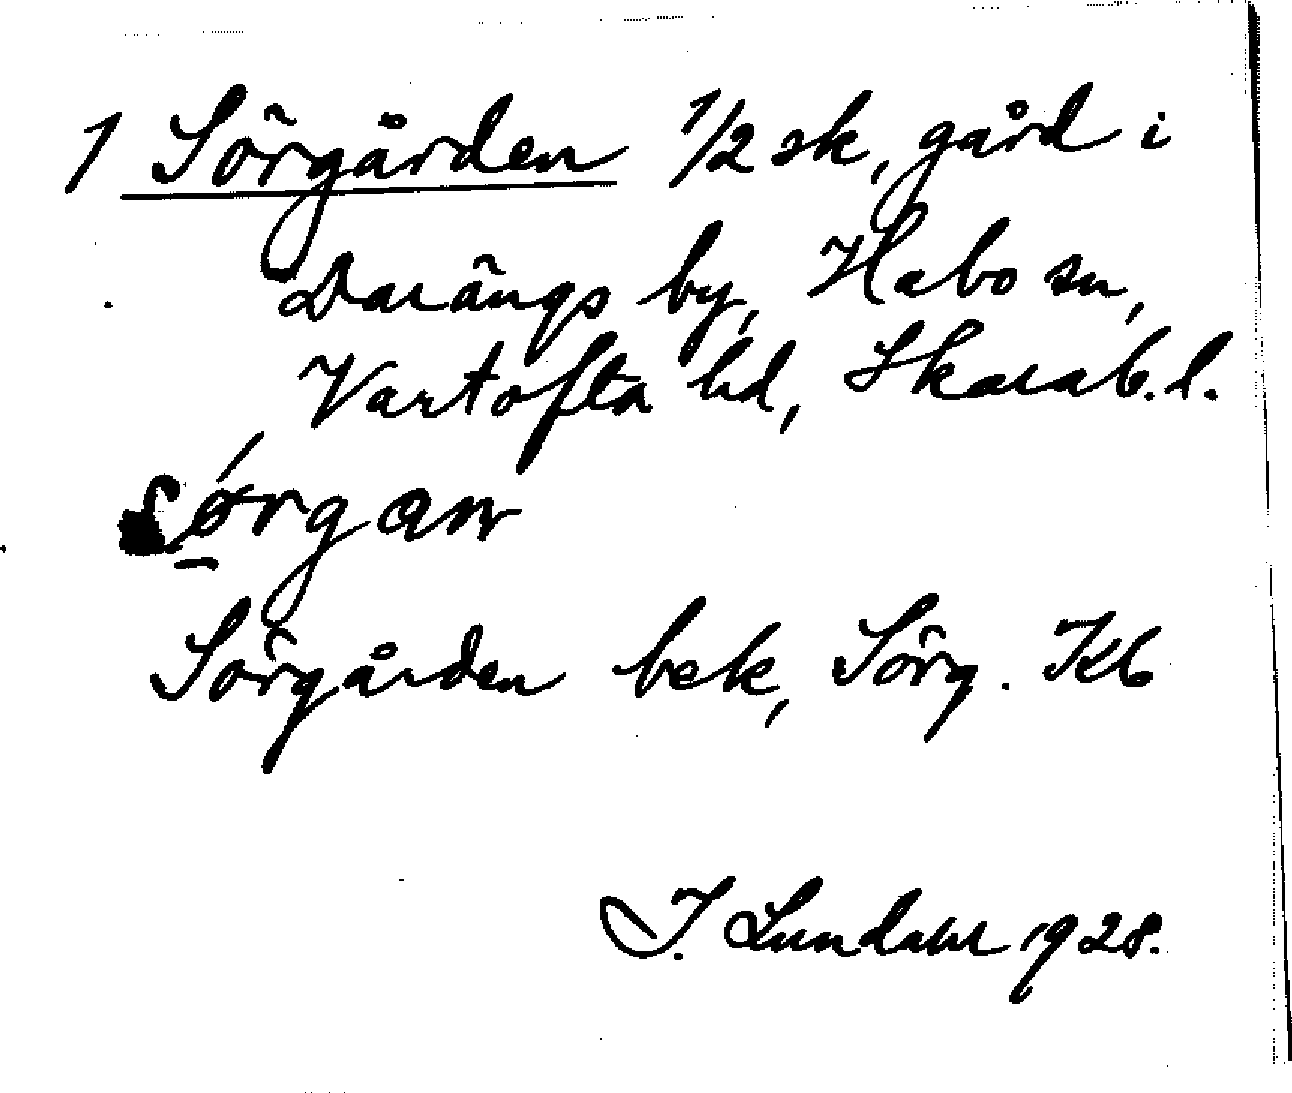 1 Sörgården 1/2 sk, gård i
Darängs by, Habo sn,
Vartofta hd, Skarab.l.
Sörgården bek, Sörg. Kb
I. Lundahl 1928.